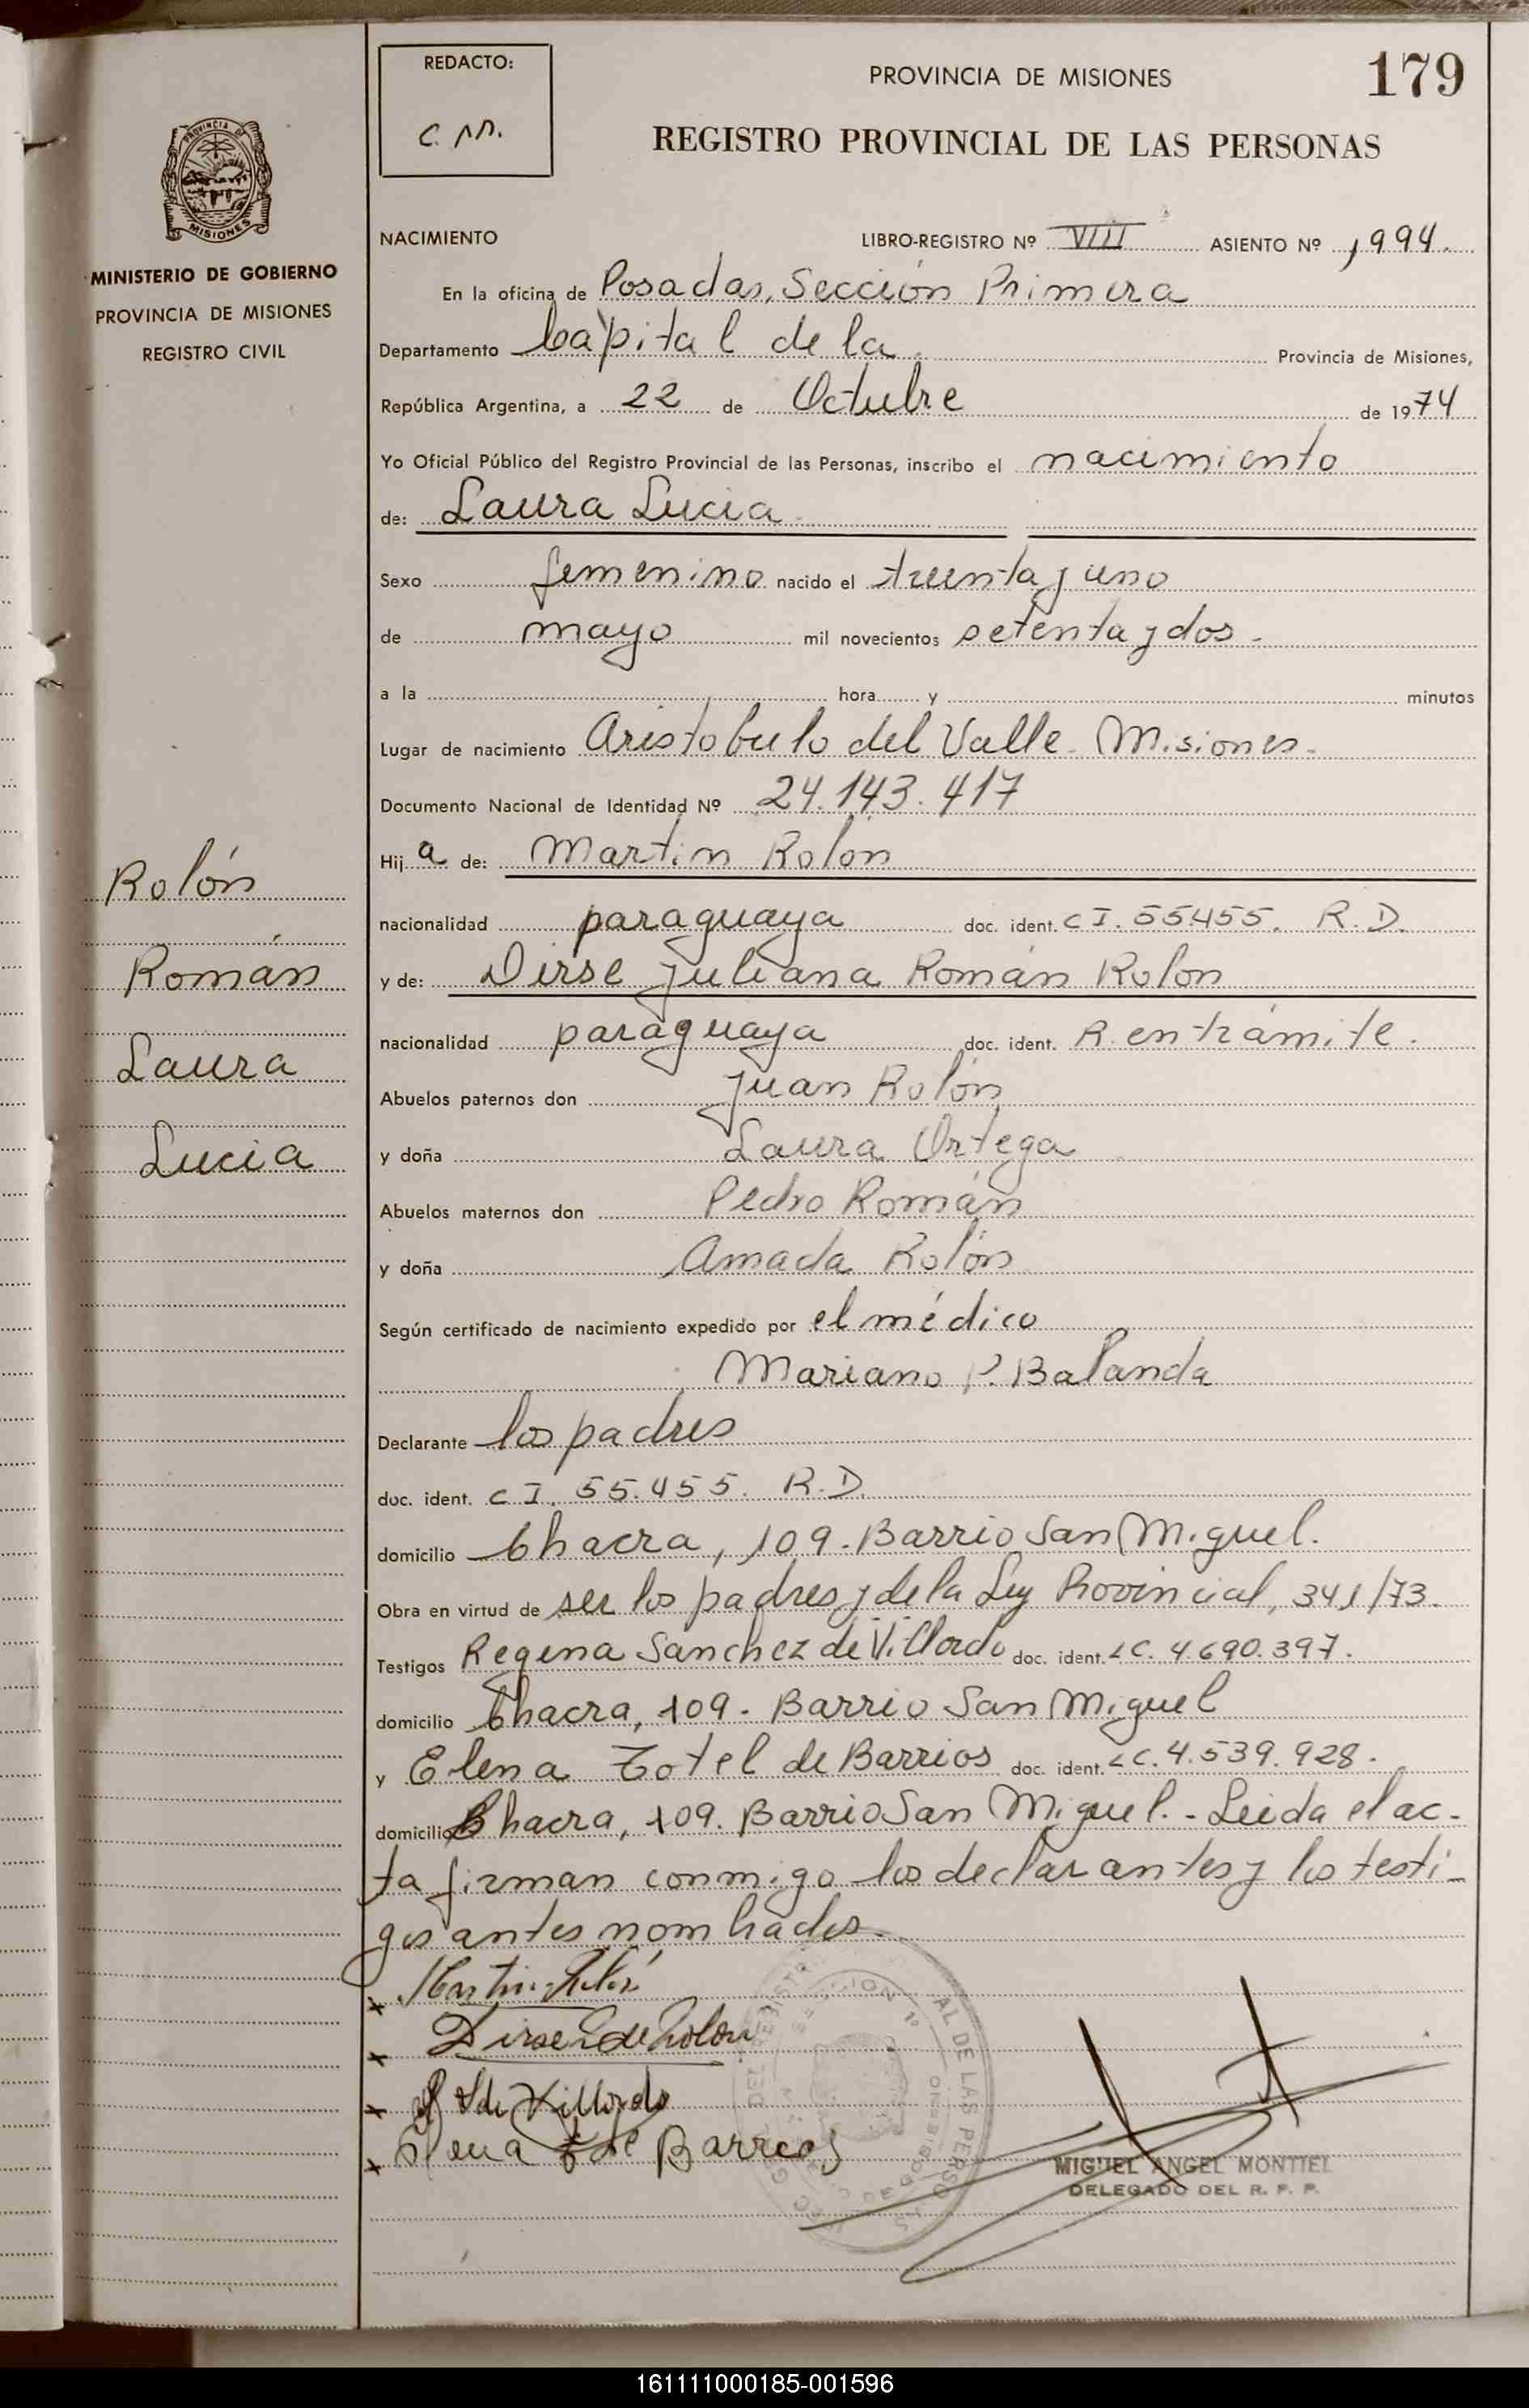 179
REDACTO:
C. M.
PROVINCIA DE MISIONES
REGISTRO PROVINCIAL DE LAS PERSONAS
PROVINCIA DE
MISIONES
MINISTERIO DE GOBIERNO
PROVINCIA DE MISIONES
REGISTRO CIVIL
NACIMIENTO LIBRO-REGISTRO Nº VIII ASIENTO Nº 1994.
En la oficina de Posadas, Sección Primera
Departamento Capital de la Provincia de Misiones,
República Argentina, a 22 de Octubre de 1974
Yo Oficial Público del Registro Provincial de las Personas, inscribo el nacimiento
de: Laura Lucia
Sexo femenino nacido el treinta y uno
de mayo mil novecientos setenta y dos -
a la hora y minutos
Lugar de nacimiento Aristobulo del Valle - Misiones -
Documento Nacional de Identidad Nº 24.143.417
Hij a de: Martin Rolón
nacionalidad paraguaya doc. ident. C I. 55455. R.D.
y de: Dirse Juliana Román Rolon
nacionalidad paraguaya doc. ident. R. en trámite.
Abuelos paternos don Juan Rolón
y doña Laura Ortega
Abuelos maternos don Pedro Román
y doña Amada Rolón
Según certificado de nacimiento expedido por el médico
Mariano P. Balanda
Declarante los padres
doc. ident. C I. 55.455. R.D.
domicilio Chacra, 109. Barrio San Miguel.
Obra en virtud de ser los padres y de la Ley Provincial, 341/73.
Testigos Regina Sanchez de Villordo doc. ident. LC. 4.690.397.
domicilio Chacra, 109 - Barrio San Miguel
y Elena Totel de Barrios doc. ident. LC. 4.539.928.
domicilio Chacra, 109. Barrio San Miguel. - Leida el ac-
ta firman conmigo los declarantes y los testi-
gos antes nombrados.
Rolón
Román
Laura
Lucia
x Martin Rolón
x Dirse R de Rolon
x de Villordo
x Elena T de Barrios
SECCION 1º
AL DE LAS PERSO
MIGUEL ANGEL MONTIEL
DELEGADO DEL R. P. P.
161111000185-001596